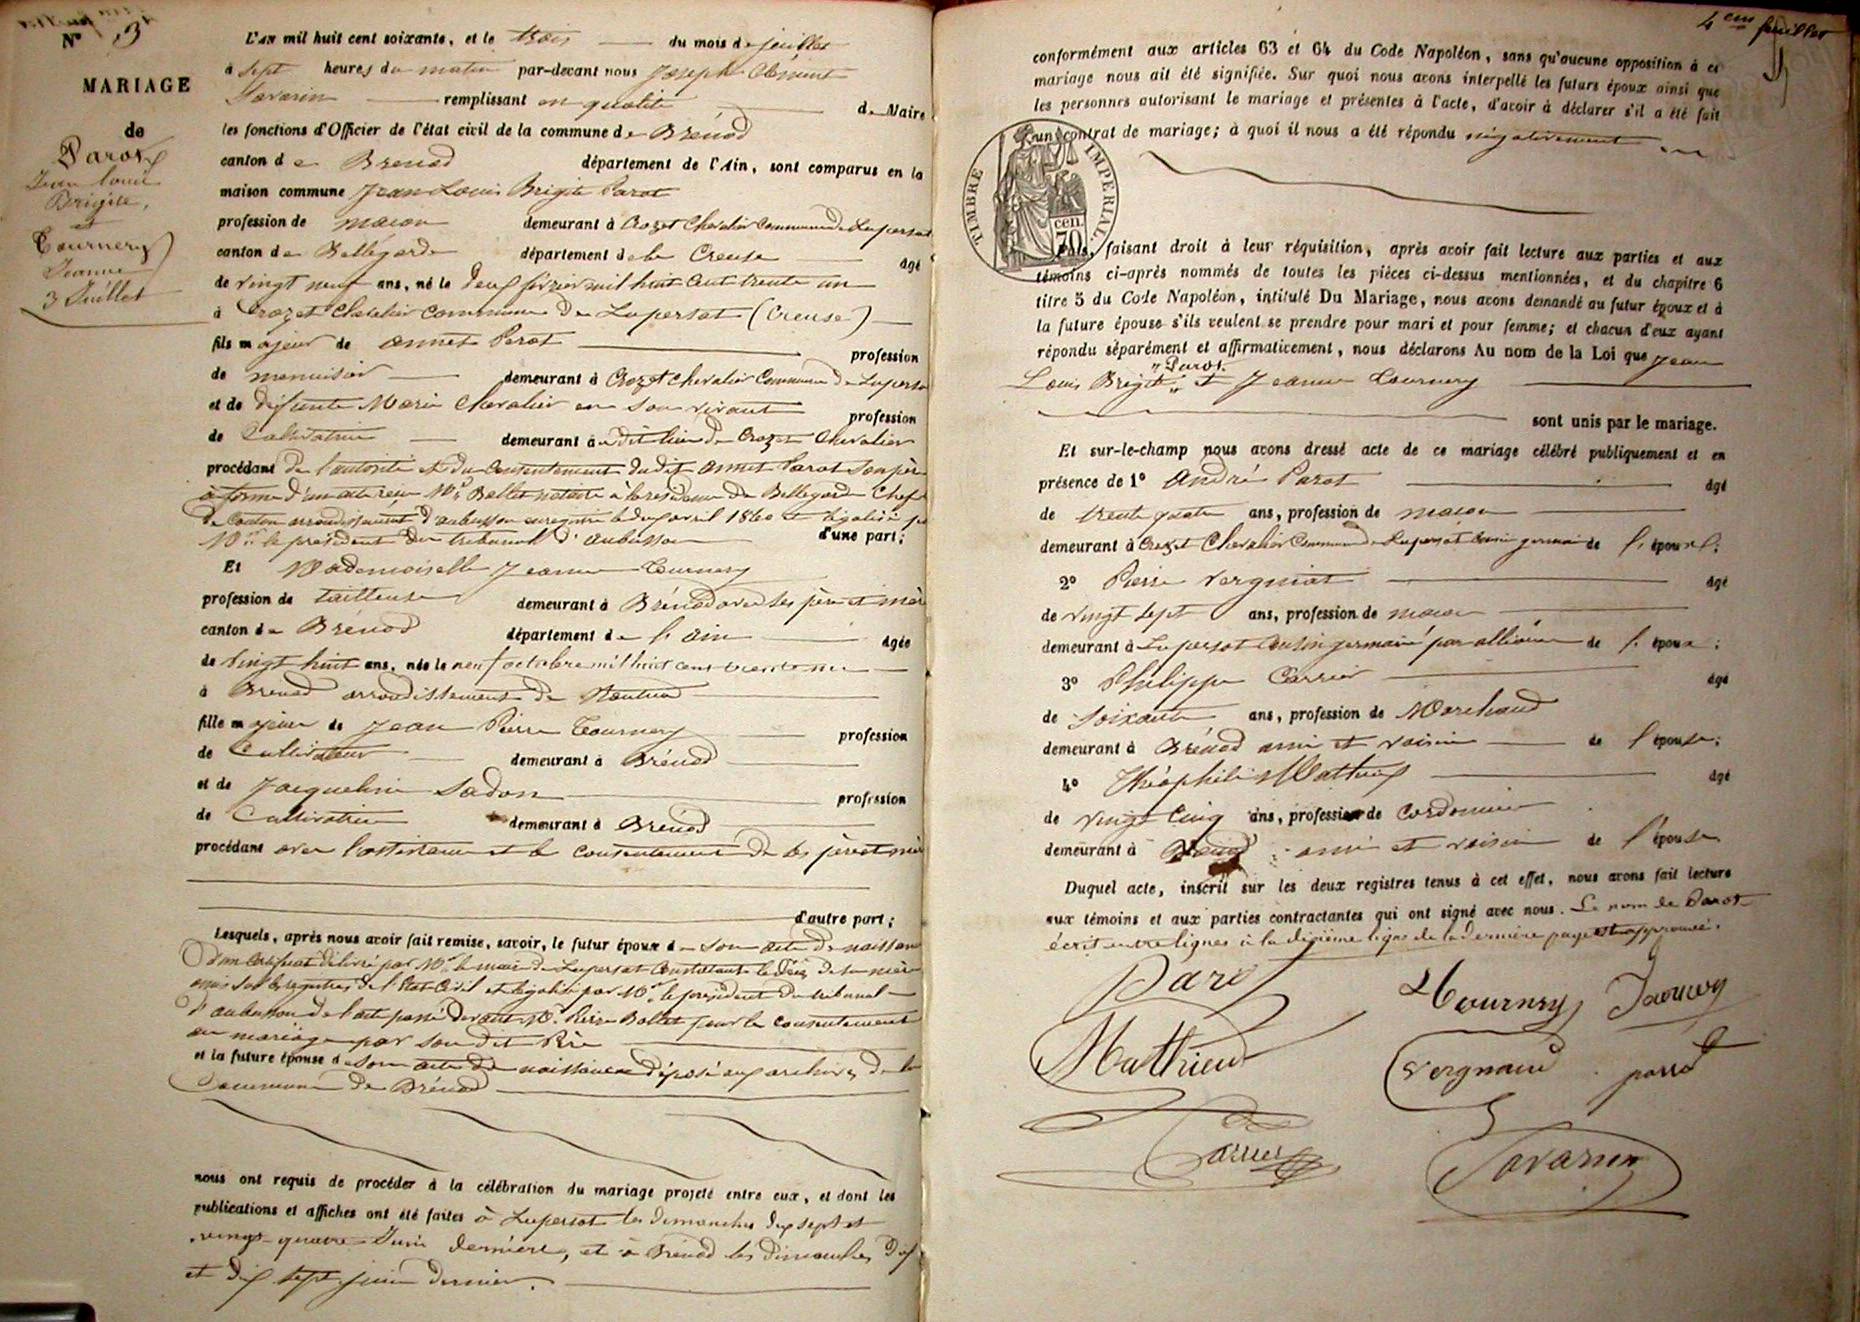 N° 3
MARIAGE
de
Parot
Jean Louis
Brigite,
et
Tournery
Jeanne
3 Juillet
L'AN mil huit cent soixante, et le trois du mois de juillet
à sept heures du matin par-devant nous Joseph Clément
Savarin remplissant en qualité de Maire
les fonctions d'Officier de l'état civil de la commune de Brénod
canton de Brenod département de l'Ain, sont comparus en la
maison commune Jean Louis Brigite Parot
profession de macon demeurant à Crozet Chevalier Commune de Lupersat
canton de Bellegarde département de la Creuse âgé
de vingt neuf ans, né le deux février mil huit cent trente un
à Crozet Chevalier commune de Lupersat (Creuse)
fils majeur de annet Parot profession
de menuisier demeurant à Crozet Chevalier Commune de Lupersat
et de défunte Marie Chevalier en son vivant profession
de Cultivatrice demeurant à dit lieu de Crozet Chevalier
procédant de l'autorité et du consentement du dit annet Parot son père
à forme d'un acte reçu Mr Ballet notaire à la residence de Bellegarde Chef
de Canton arrondissement d'aubusson enregistré le dix avril 1860 et légalisé par
Mr le président du tribunal d'aubusson d'une part;
Et Mademoiselle Jeanne Tournery
profession de tailleuse demeurant à Brénod avec ses père et mère
canton de Brénod département de l'ain âgée
de vingt huit ans, née le neuf octobre mil huit cent trente un
à Brenod arrondissement de Nantua
fille majeure de Jean Pierre Tournery profession
de Cultivateur demeurant à Brénod
et de Jacqueline Sadon profession
de Cultivatrice demeurant à Brénod
procédant avec l'assistance et le consentement de ses père et mère
d'autre part;
Lesquels, après nous avoir fait remise, savoir, le futur époux de son acte de naissance
d'un certificat délivré par Mr le maire de Lupersat constatant le décès de sa mère
mis sur les registres de l'Etat Civil et légalisé par Mr le president du tribunal
d'aubusson de l'acte passé devant Mr Pierre Ballet pour le consentement
au mariage par son dit Père
et la future épouse de son acte de naissance déposé aux archives de la
Commune de Brénod
nous ont requis de procéder à la célébration du mariage projeté entre eux, et dont les
publications et affiches ont été faites à Lupersat les dimanches dix sept et
vingt-quatre Juin dernière, et à Brénod les dimanches dix
et dix sept juin dernier.
4eme feuillet
conformément aux articles 63 et 64 du Code Napoléon, sans qu'aucune opposition à ce
mariage nous ait été signifiée. Sur quoi nous avons interpellé les futurs époux ainsi que
les personnes autorisant le mariage et présentes à l'acte, d'avoir à déclarer s'il a été fait
un contrat de mariage; à quoi il nous a été répondu négativement
TIMBRE IMPERIAL
70 cen.
Puis, faisant droit à leur réquisition, après avoir fait lecture aux parties et aux
témoins ci-après nommés de toutes les pièces ci-dessus mentionnées, et du chapitre 6
titre 5 du Code Napoléon, intitulé Du Mariage, nous avons demandé au futur époux et à
la future épouse s'ils veulent se prendre pour mari et pour femme; et chacun d'eux ayant
répondu séparément et affirmativement, nous déclarons Au nom de la Loi que Jean
"Parot."
Louis Brigite et Jeanne Tournery
sont unis par le mariage.
Et sur-le-champ nous avons dressé acte de ce mariage célébré publiquement et en
présence de 1° André Parot âgé
de trente quatre ans, profession de macon
demeurant à Crozet Chevalier Commune de Lupersat cousin germain de l'époux;
2° Pierre Vergniat âgé
de vingt sept ans, profession de macon
demeurant à Lupersat cousin germain par alliance de l'époux;
3° Philippe Carrier âgé
de soixante ans, profession de Marchand
demeurant à Brénod ami et voisin de l'épouse;
4° Théophile Mathieu âgé
de vingt cinq ans, profession de Cordonnier
demeurant à Brénod ami et voisin de l'épouse
Duquel acte, inscrit sur les deux registres tenus à cet effet, nous avons fait lecture
aux témoins et aux parties contractantes qui ont signé avec nous. Le nom de Parot
écrit entre lignes à la dixième ligne de la dernière page est approuvé.
Parot
Tournery
Mathieu
Vergnaud
parot
Carrier
Savarin